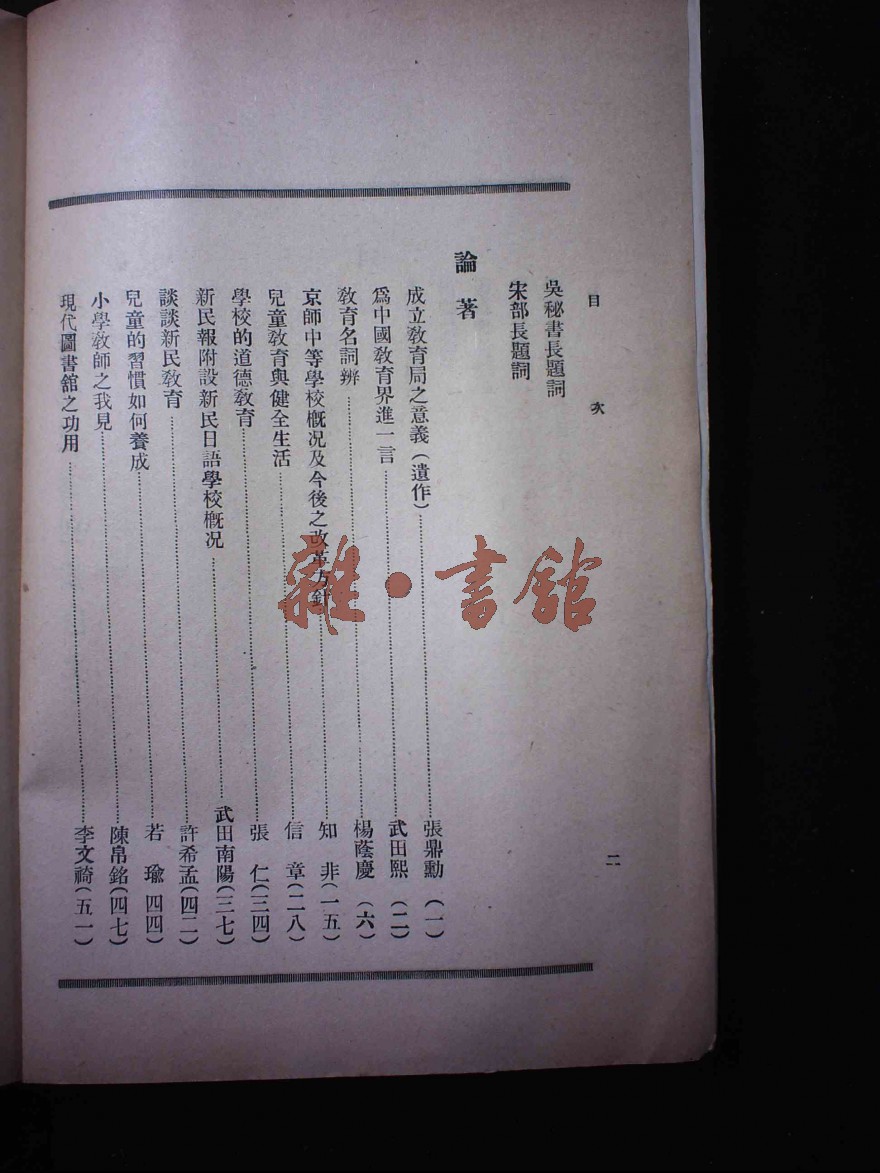 目次
二
吳秘書長題詞
宋部長題詞
論著
成立教育局之意義(遺作)……張鼎勳(一)
爲中國教育界進一言……武田熙(二)
教育名詞辨……楊蔭慶(六)
京師中等學校概况及今後之改革方針……知非(一五)
兒童教育與健全生活……信章(二八)
學校的道德教育……張仁(三四)
新民報附設新民日語學校概况……武田南陽(三七)
談談新民教育……許希孟(四二)
兒童的習慣如何養成……若瑜(四四)
小學教師之我見……陳帛銘(四七)
現代圖書舘之功用……李文裿(五一)
雜·書館